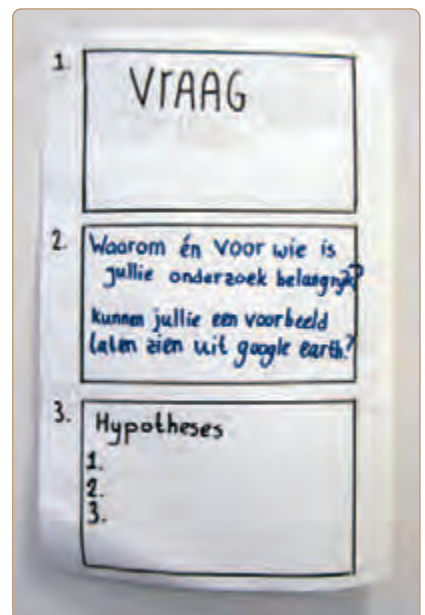 1.
VrAAG
2.
Waarom én voor wie is
jullie onderzoek belangrijk?
kunnen jullie een voorbeeld
laten zien uit google earth?
3.
Hypotheses
1.
2.
3.